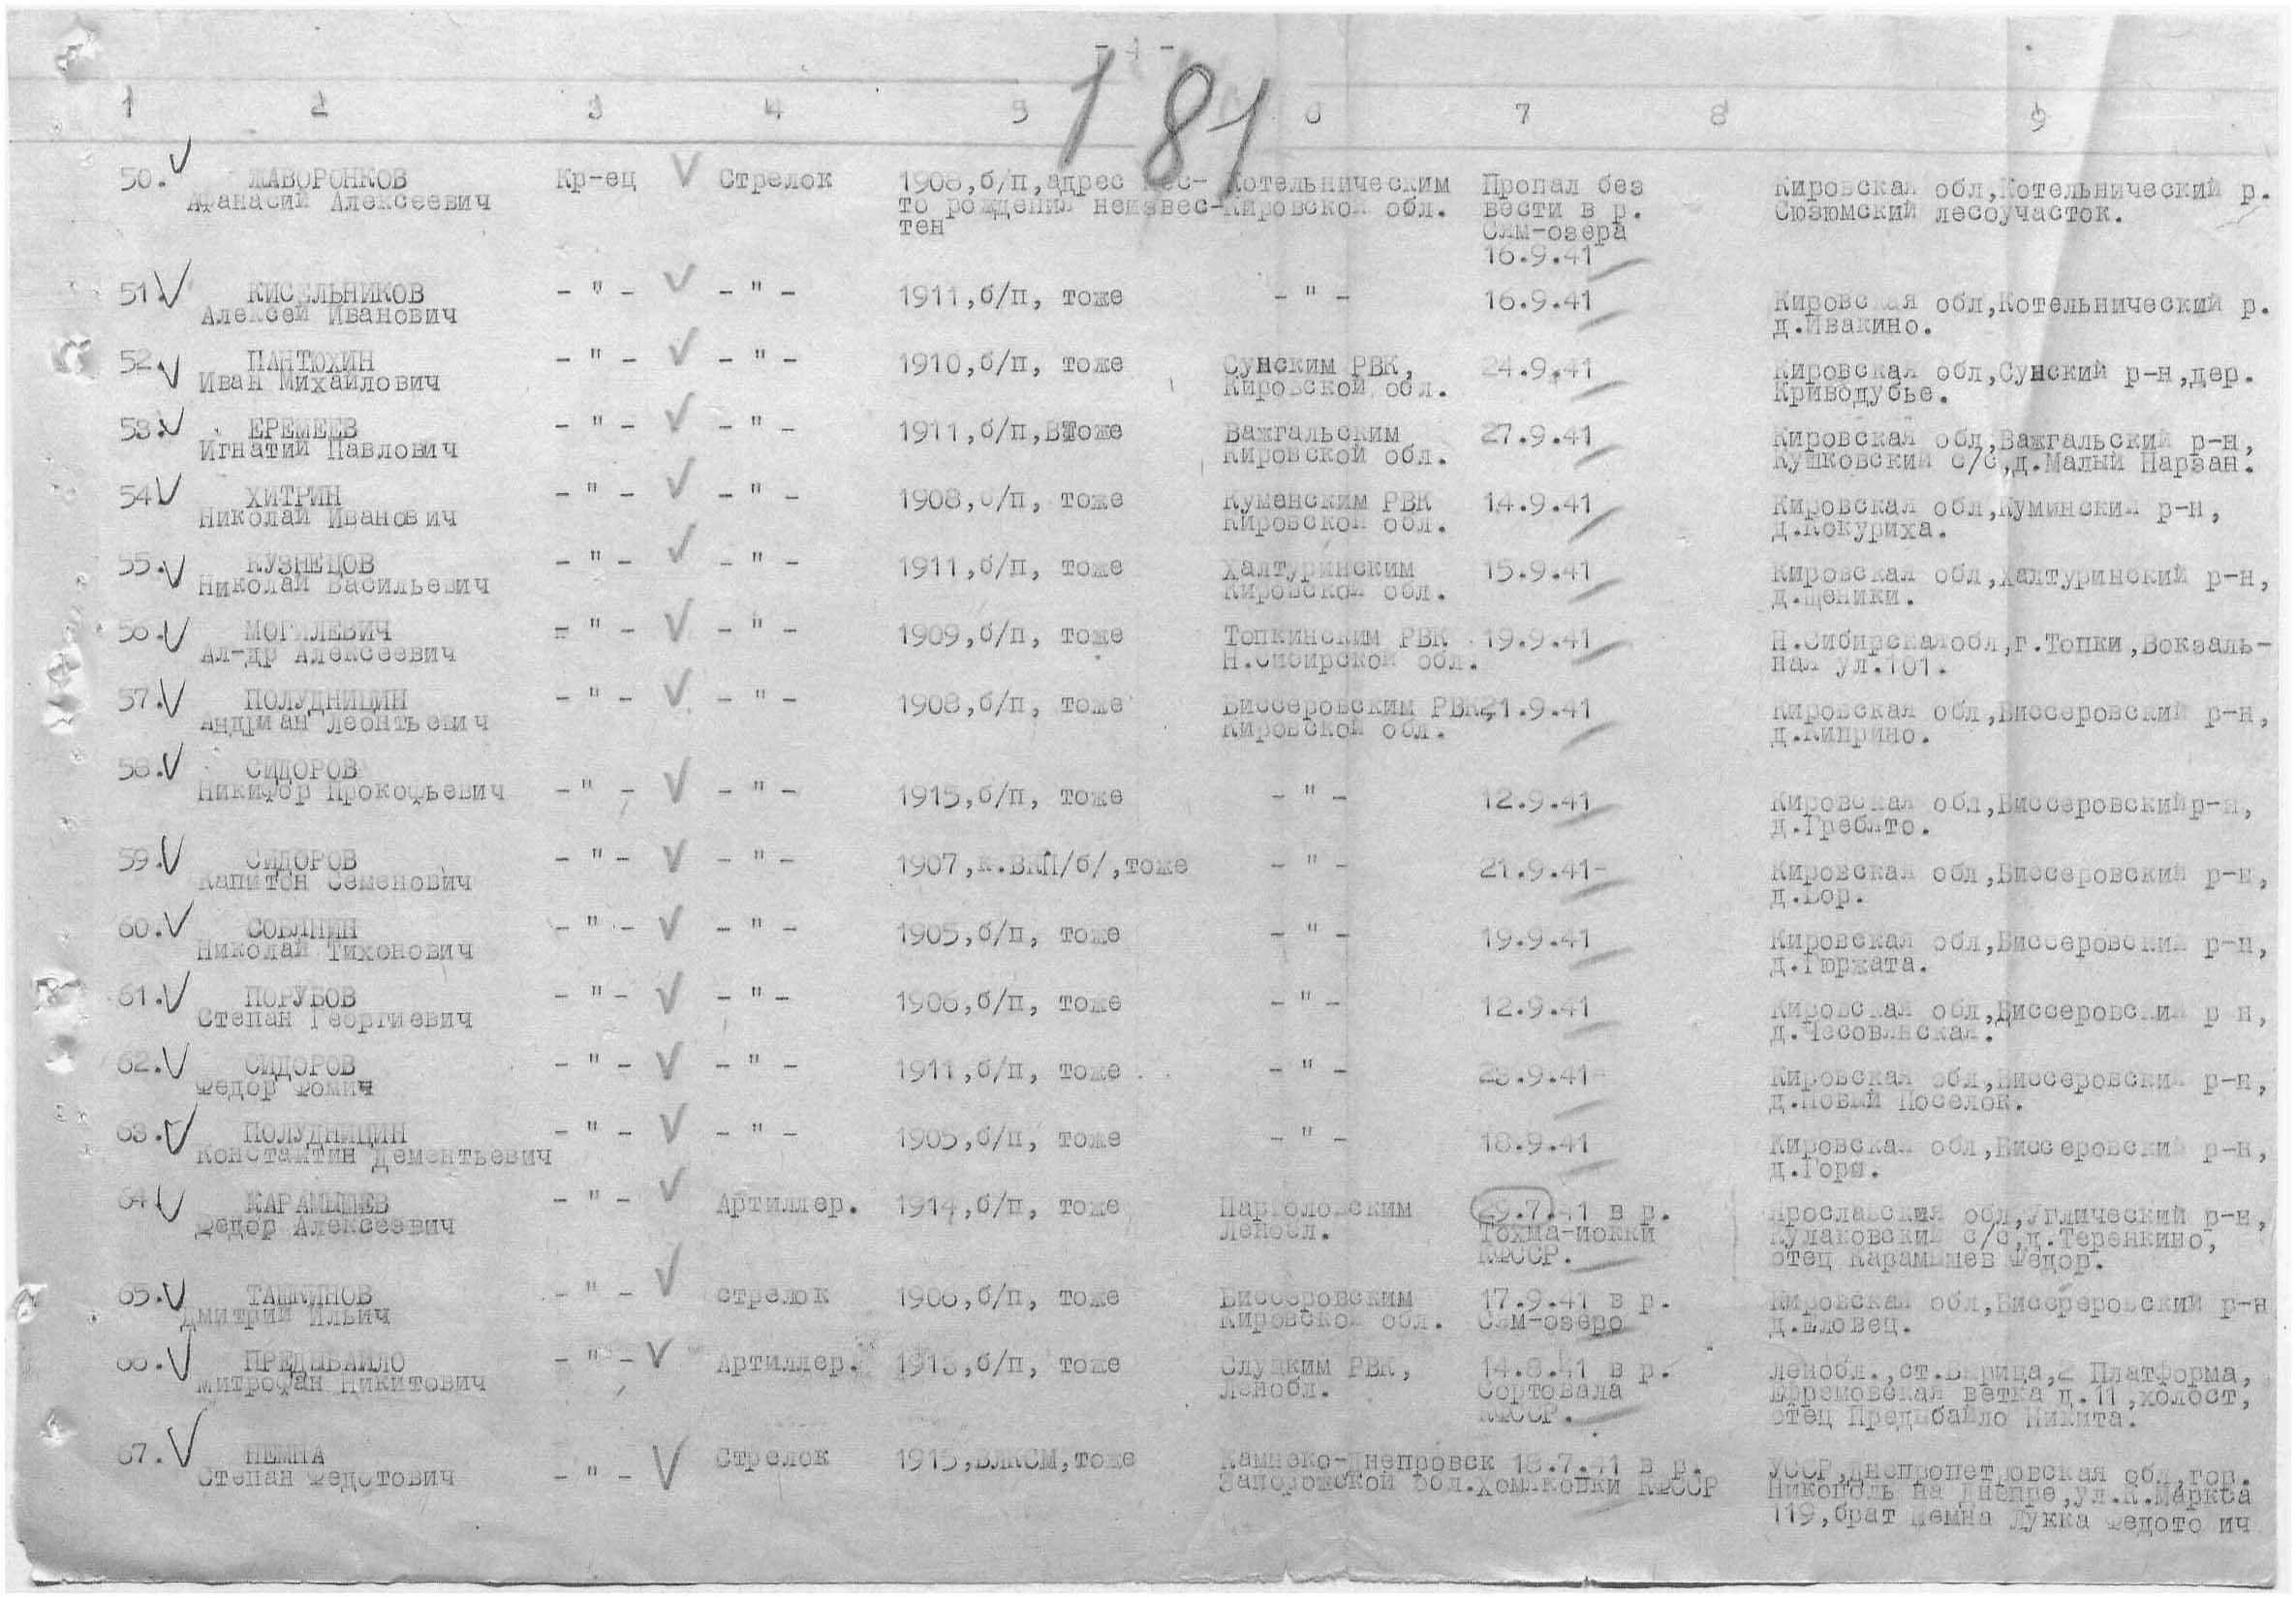 - 4 -
181
1 2 3 4 5 6 7 8 9
50. ЖАВОРОНКОВ Кр-ец Стрелок 1908,б/п,адрес мес- Котельническим Пропал без Кировская обл,Котельнический р.
Афанасий Алексеевич то рождения неизвес- Кировской обл. вести в р. Сюзюмский лесоучасток.
тен Сям-озера
16.9.41
51. КИСЕЛЬНИКОВ - " - - " - 1911,б/п, тоже - " - 16.9.41 Кировская обл,Котельнический р.
Алексей Иванович д.Ивакино.
52. ПАНТЮХИН - " - - " - 1910,б/п, тоже Сунским РВК, 24.9.41 Кировская обл,Сунский р-н,дер.
Иван Михайлович Кировской обл. Криводубье.
53. ЕРЕМЕЕВ - " - - " - 1911,б/п, тоже Важгальским 27.9.41 Кировская обл,Важгальский р-н,
Игнатий Павлович Кировской обл. Кушковский с/с,д.Малый Парзан.
54 ХИТРИН - " - - " - 1908,б/п, тоже Куменским РВК 14.9.41 Кировская обл,Куминский р-н,
Николай Иванович Кировской обл. д.Кокуриха.
55. КУЗНЕЦОВ - " - - " - 1911,б/п, тоже Халтуринским 15.9.41 Кировская обл,Халтуринский р-н,
Николай Васильевич Кировской обл. д.Щеники.
56. МОГИЛЕВИЧ - " - - " - 1909,б/п, тоже Топкинским РВК 19.9.41 Н.Сибирская обл,г.Топки,Вокзаль-
Ал-др Алексеевич Н.Сибирской обл. ная ул.101.
57. ПОЛУДНИЦИН - " - - " - 1908,б/п, тоже Биссеровским РВК, 21.9.41 Кировская обл,Биссеровский р-н,
Андриан Леонтьевич Кировской обл. д.Киприно.
58. СИДОРОВ
Никифор Прокофьевич - " - - " - 1915,б/п, тоже - " - 12.9.41 Кировская обл,Биссеровский р-н,
д.
59. СИДОРОВ - " - - " - 1907,к.ВКП/б/,тоже - " - 21.9.41- Кировская обл,Биссеровский р-н,
Капитон Семенович д.Бор.
60. СОБЯНИН - " - - " - 1905,б/п, тоже - " - 19.9.41 Кировская обл,Биссеровский р-н,
Николай Тихонович д.Гюржата.
61. ПОРУБОВ - " - - " - 1906,б/п, тоже - " - 12.9.41 Кировская обл,Биссеровский р-н,
Степан Георгиевич д.
62. СИДОРОВ - " - - " - 1911,б/п, тоже - " - 23.9.41- Кировская обл,Биссеровский р-н,
Федор Фомич д.Новый Поселок.
63. ПОЛУДНИЦИН - " - - " - 1905,б/п, тоже - " - 18.9.41 Кировская обл,Биссеровский р-н,
Константин Дементьевич д.Горы.
64 КАРАМЫШЕВ - " - Артиллер. 1914,б/п, тоже Парголовским 29.7.41 в р. Ярославския обл,Углический р-н,
Федор Алексеевич Леносл. Тохма-иокки Кулаковский с/с,д.Теренкино,
КФССР. отец Карамышев Федор.
65. ТАШКИНОВ - " - стрелок 1906,б/п, тоже Биссеровским 17.9.41 в р. Кировская обл, р-н
Дмитрий Ильич Кировской обл. Сям-озеро д.Еловец.
66. ПРЕДЫБАЙЛО - " - Артиллер. 1918,б/п, тоже Слуцким РВК, 14.8.41 в р. Ленобл.,ст.Вырица,2 Платформа,
Митрофан Никитович Ленобл. Сортовала Ефремовская ветка д.11,холост,
КФССР. отец Предыбайло Никита.
67. НЕМНА Стрелок 1915,ВЛКСМ,тоже Камнеко-Днепровск 18.7.41 в р. УССР,Днепропетровская обл,гор.
Степан Федотович - " - Запорожской обл. Хомяковки КФССР Никополь на Днепре,ул.К.Маркса
119,брат Немна Лукка Федото ич